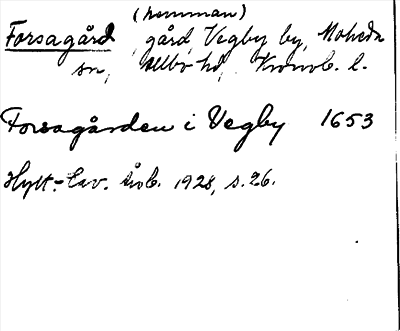 (hemman)
Forsagård, gård, Vegby by, Moheda
sn, Allbo hd, Kronob. l.
Forsagården i Vegby 1653
Hylt.-Cav. årsb. 1928, s. 26.